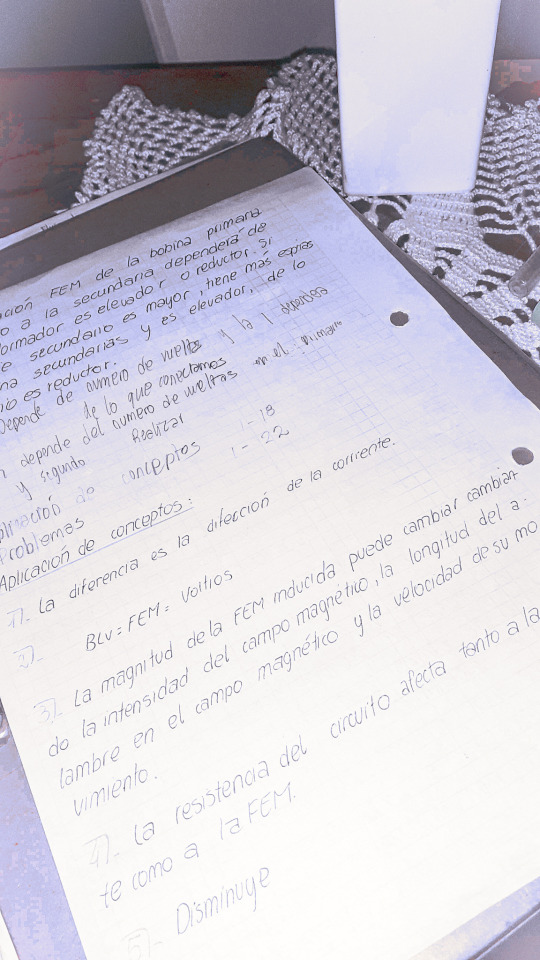 FEM de la bobina primaria
o a la secundaria dependerá de
formador es elevador o reductor. Si
e secundario es mayor, tiene más espiras
na secundarias y es elevador, de lo
io es reductor.
Depende de numero de vuelta y la 1 dependea
de lo que conectemos
n depende del numero de vueltas en el primario
y segundo Realizar
de conceptos 1-18
Problemas 1-22
Aplicación de conceptos:
1). La diferencia es la dirección de la corriente.
2)- BLv = FEM = Voltios
3). La magnitud de la FEM inducida puede cambiar cambian
do la intensidad del campo magnético, la longitud del a-
lambre en el campo magnético y la velocidad de su mo
vimiento.
4)- La resistencia del circuito afecta tanto a la
te como a la FEM.
5)- Disminuye